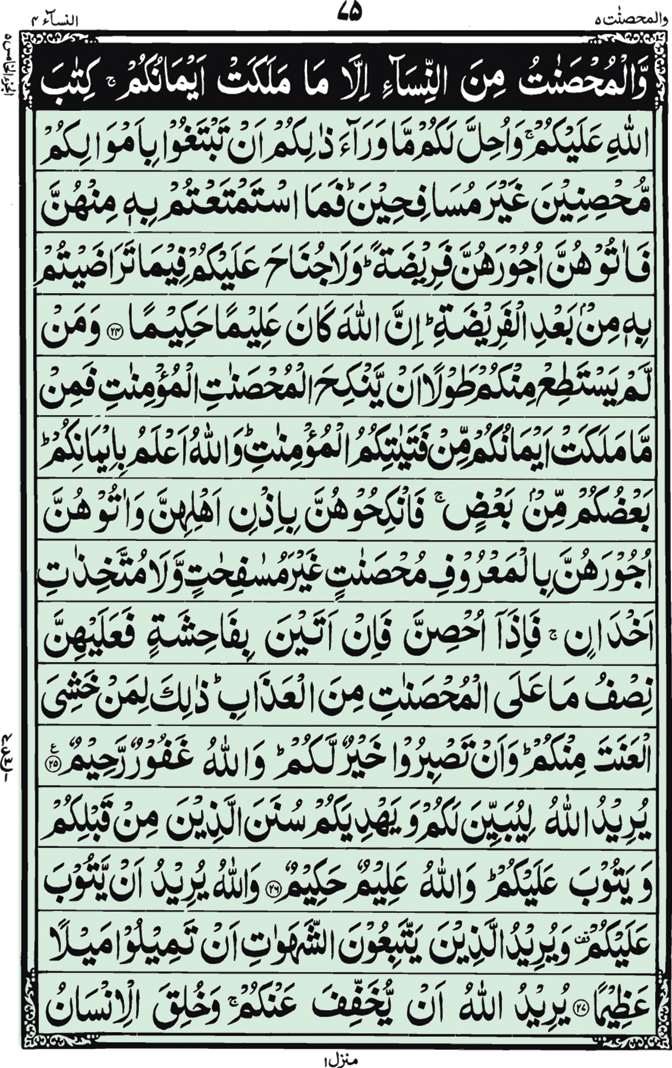 النسآء ٤
٧٥
والمحصنٰت ٥
وَّالْمُحْصَنٰتُ مِنَ النِّسَآءِ اِلَّا مَا مَلَكَتْ اَيْمَانُكُمْ ۚ كِتٰبَ
اللّٰهِ عَلَيْكُمْ ۚ وَاُحِلَّ لَكُمْ مَّا وَرَآءَ ذٰلِكُمْ اَنْ تَبْتَغُوْا بِاَمْوَالِكُمْ
مُّحْصِنِيْنَ غَيْرَ مُسَافِحِيْنَ ؕ فَمَا اسْتَمْتَعْتُمْ بِهٖ مِنْهُنَّ
فَاٰتُوْهُنَّ اُجُوْرَهُنَّ فَرِيْضَةً ؕ وَلَا جُنَاحَ عَلَيْكُمْ فِيْمَا تَرَاضَيْتُمْ
بِهٖ مِنْۢ بَعْدِ الْفَرِيْضَةِ ؕ اِنَّ اللّٰهَ كَانَ عَلِيْمًا حَكِيْمًا ﴿۲۴﴾ وَمَنْ
لَّمْ يَسْتَطِعْ مِنْكُمْ طَوْلًا اَنْ يَّنْكِحَ الْمُحْصَنٰتِ الْمُؤْمِنٰتِ فَمِنْ
مَّا مَلَكَتْ اَيْمَانُكُمْ مِّنْ فَتَيٰتِكُمُ الْمُؤْمِنٰتِ ؕ وَاللّٰهُ اَعْلَمُ بِاِيْمَانِكُمْ ؕ
بَعْضُكُمْ مِّنْۢ بَعْضٍ ۚ فَانْكِحُوْهُنَّ بِاِذْنِ اَهْلِهِنَّ وَاٰتُوْهُنَّ
اُجُوْرَهُنَّ بِالْمَعْرُوْفِ مُحْصَنٰتٍ غَيْرَ مُسٰفِحٰتٍ وَّلَا مُتَّخِذٰتِ
اَخْدَانٍ ۚ فَاِذَاۤ اُحْصِنَّ فَاِنْ اَتَيْنَ بِفَاحِشَةٍ فَعَلَيْهِنَّ
نِصْفُ مَا عَلَى الْمُحْصَنٰتِ مِنَ الْعَذَابِ ؕ ذٰلِكَ لِمَنْ خَشِىَ
الْعَنَتَ مِنْكُمْ ؕ وَاَنْ تَصْبِرُوْا خَيْرٌ لَّكُمْ ؕ وَاللّٰهُ غَفُوْرٌ رَّحِيْمٌ ﴿۲۵﴾ ع
يُرِيْدُ اللّٰهُ لِيُبَيِّنَ لَكُمْ وَيَهْدِيَكُمْ سُنَنَ الَّذِيْنَ مِنْ قَبْلِكُمْ
وَيَتُوْبَ عَلَيْكُمْ ؕ وَاللّٰهُ عَلِيْمٌ حَكِيْمٌ ﴿۲۶﴾ وَاللّٰهُ يُرِيْدُ اَنْ يَّتُوْبَ
عَلَيْكُمْ قف وَيُرِيْدُ الَّذِيْنَ يَتَّبِعُوْنَ الشَّهَوٰتِ اَنْ تَمِيْلُوْا مَيْلًا
عَظِيْمًا ﴿۲۷﴾ يُرِيْدُ اللّٰهُ اَنْ يُّخَفِّفَ عَنْكُمْ ۚ وَخُلِقَ الْاِنْسَانُ
منزل ١